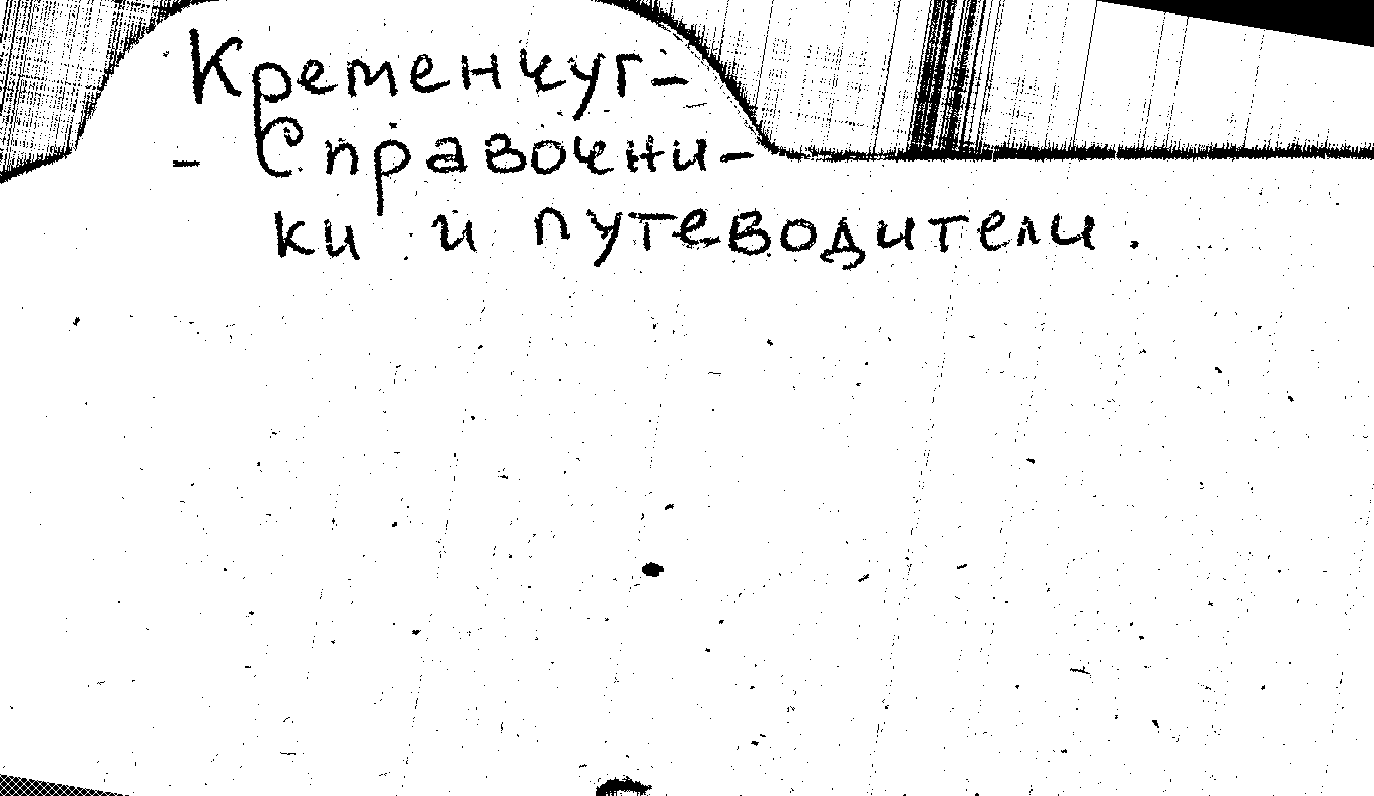 Кременчуг-
- Справочни-
ки и путеводители.